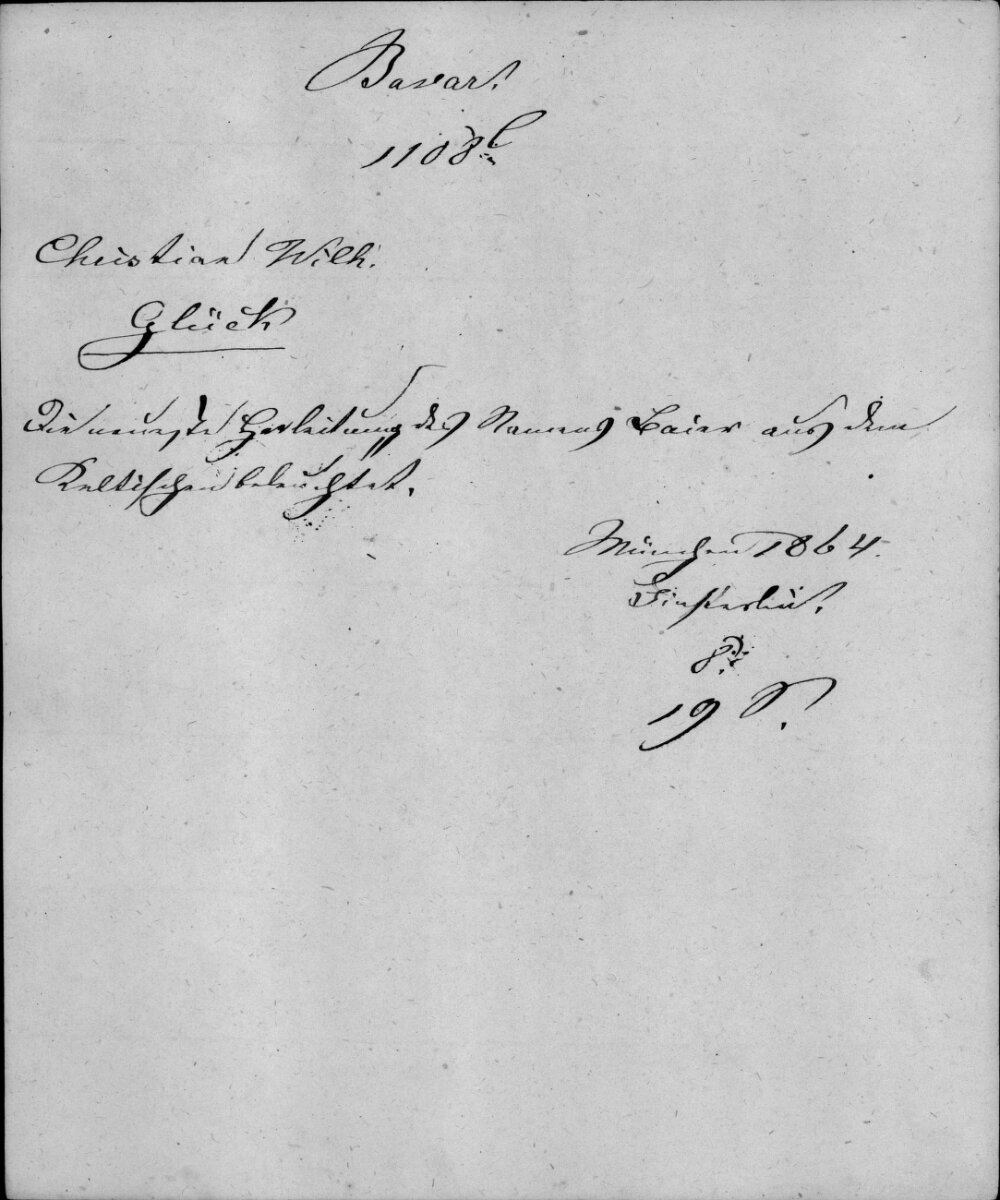 Bavar.
1108
Christian Wilh.
Glück
Die neueste Herleitung des Namens Baier aus dem
Keltischen beleuchtet.
München 1864.
Finsterlin.
8°.
19 S.